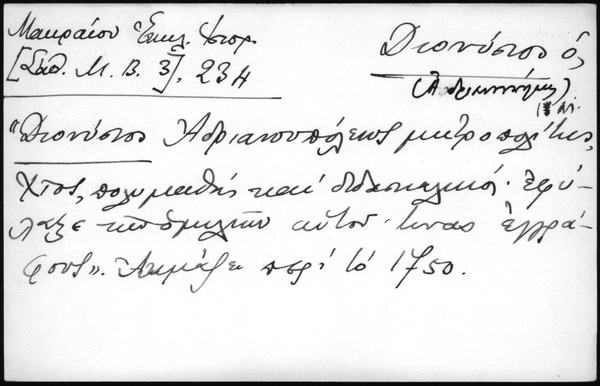 Μακραίου Ἐκκλ. Ἱστορ.
[Σαθ. Μ. Β. 3], 234
Διονύσιος ὁ,
(Ἀδριανουπόλεως)
"Διονύσιος Ἀδριανουπόλεως μητροπολίτης,
Χῖος, πολυμαθὴς καὶ διδασκαλικός· ἐφύ-
λαξε τῶν ὁμιλιῶν αὐτοῦ τινας ἐγγρά-
φους». Ἀκμάζει περὶ τὸ 1750.